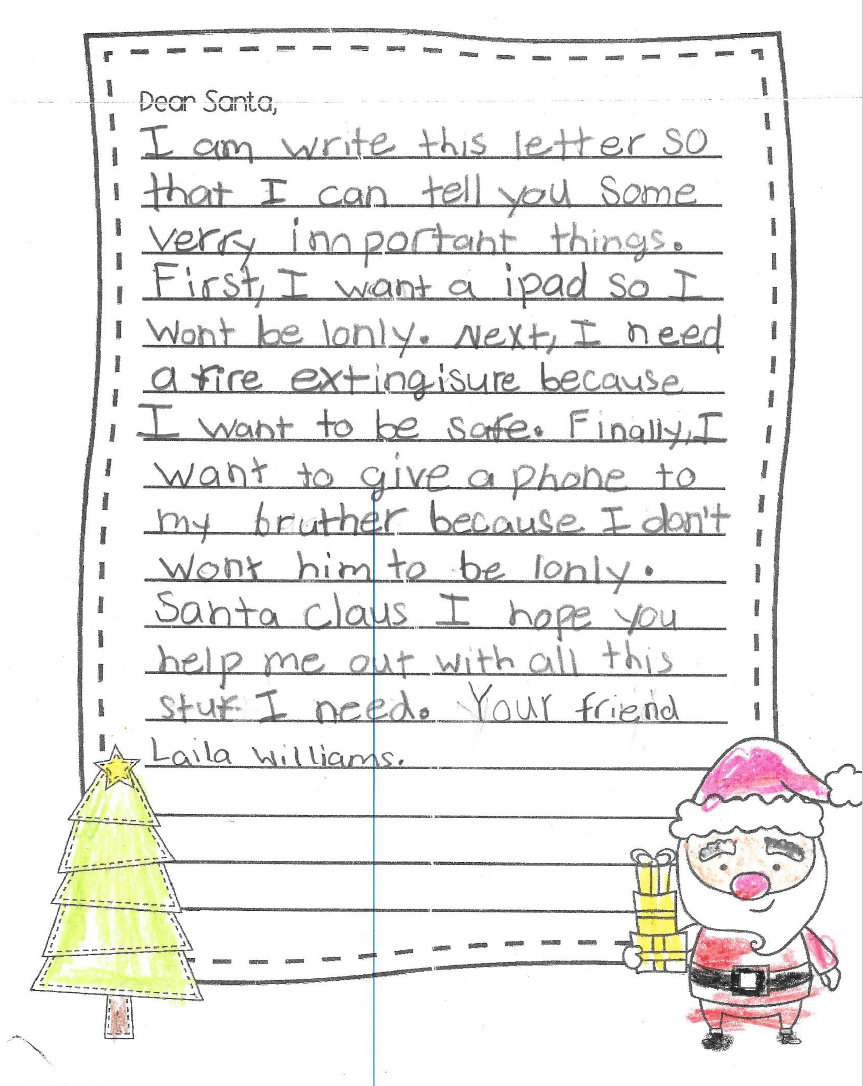 Dear Santa,
I am write this letter so
that I can tell you some
verry important things.
First, I want a ipad so I
wont be lonly. Next, I need
a fire extingisure because
I want to be safe. Finally, I
want to give a phone to
my bruther because I don't
wont him to be lonly.
Santa claus I hope you
help me out with all this
stuf I need. Your friend
Laila Williams.